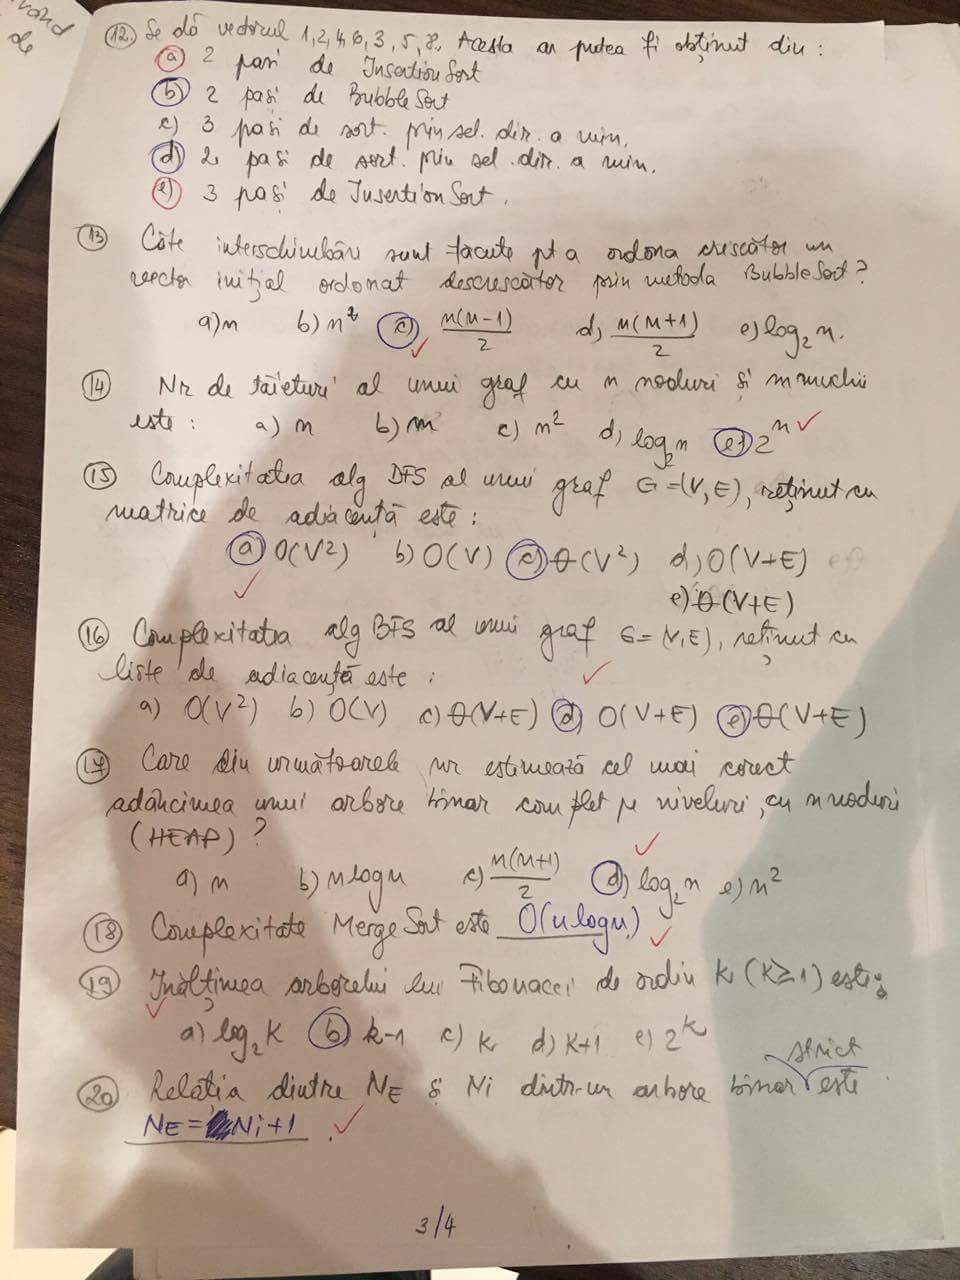 rand
de
12. Se dă vectorul 1,2,4,6,3,5,8. Acesta ar putea fi obținut din :
a) 2 pași de InsertionSort
b) 2 pași de BubbleSort
c) 3 pași de sort. prin sel. dir. a min.
d) 2 pași de sort. prin sel. dir. a min.
e) 3 pași de InsertionSort.
13 Câte interschimbări sunt făcute pt a ordona crescător un
vector inițial ordonat descrescător prin metoda BubbleSort?
a) n b) n² c) n(n-1)/2 d) n(n+1)/2 e) log₂ n.
14 Nr de tăieturi al unui graf cu n noduri și m muchii
este : a) n b) m c) n² d) log₂ n e) 2ⁿ
15 Complexitatea alg DFS al unui graf G=(V,E), reținut cu
matrice de adiacență este :
a) O(V²) b) O(V) c) Θ(V²) d) O(V+E)
e) Θ(V+E)
16 Complexitatea alg BFS al unui graf G=(V,E), reținut cu
liste de adiacență este :
a) O(V²) b) O(V) c) Θ(V+E) d) O(V+E) e) Θ(V+E)
17 Care din următoarele nr estimează cel mai corect
adâncimea unui arbore binar complet pe niveluri, cu n noduri
(HEAP) ?
a) n b) n log n c) n(n+1)/2 d) log₂ n e) n²
18 Complexitate Merge Sort este O(n log n)
19 Înălțimea arborelui lui Fibonacci de ordin k (k≥1) este:
a) log₂ k b) k-1 c) k d) k+1 e) 2ᵏ
strict
20 Relația dintre NE și Ni dintr-un arbore binar este
NE = Ni+1.
3/4